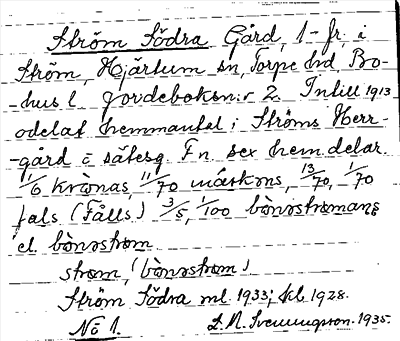 Ström Södra Gård, 1-fr. i
Ström, Hjärtum sn, Torpe hd, Bo-
-hus l. Jordeboksn:r 2. Intill 1913
odelat hemmantal i Ströms Herr-
-gård = sätesg. Fn sex hem.delar.
1/6 kvònas, 11/70 måskons, 13/70, 1/70
fals (Fålls) 3/5, 1/100 bònostromans
el. bònostrom
strom, (bònostrom)
Ström Södra ml. 1933; kl. 1928.
No 1. L. N. Svenungson. 1935.